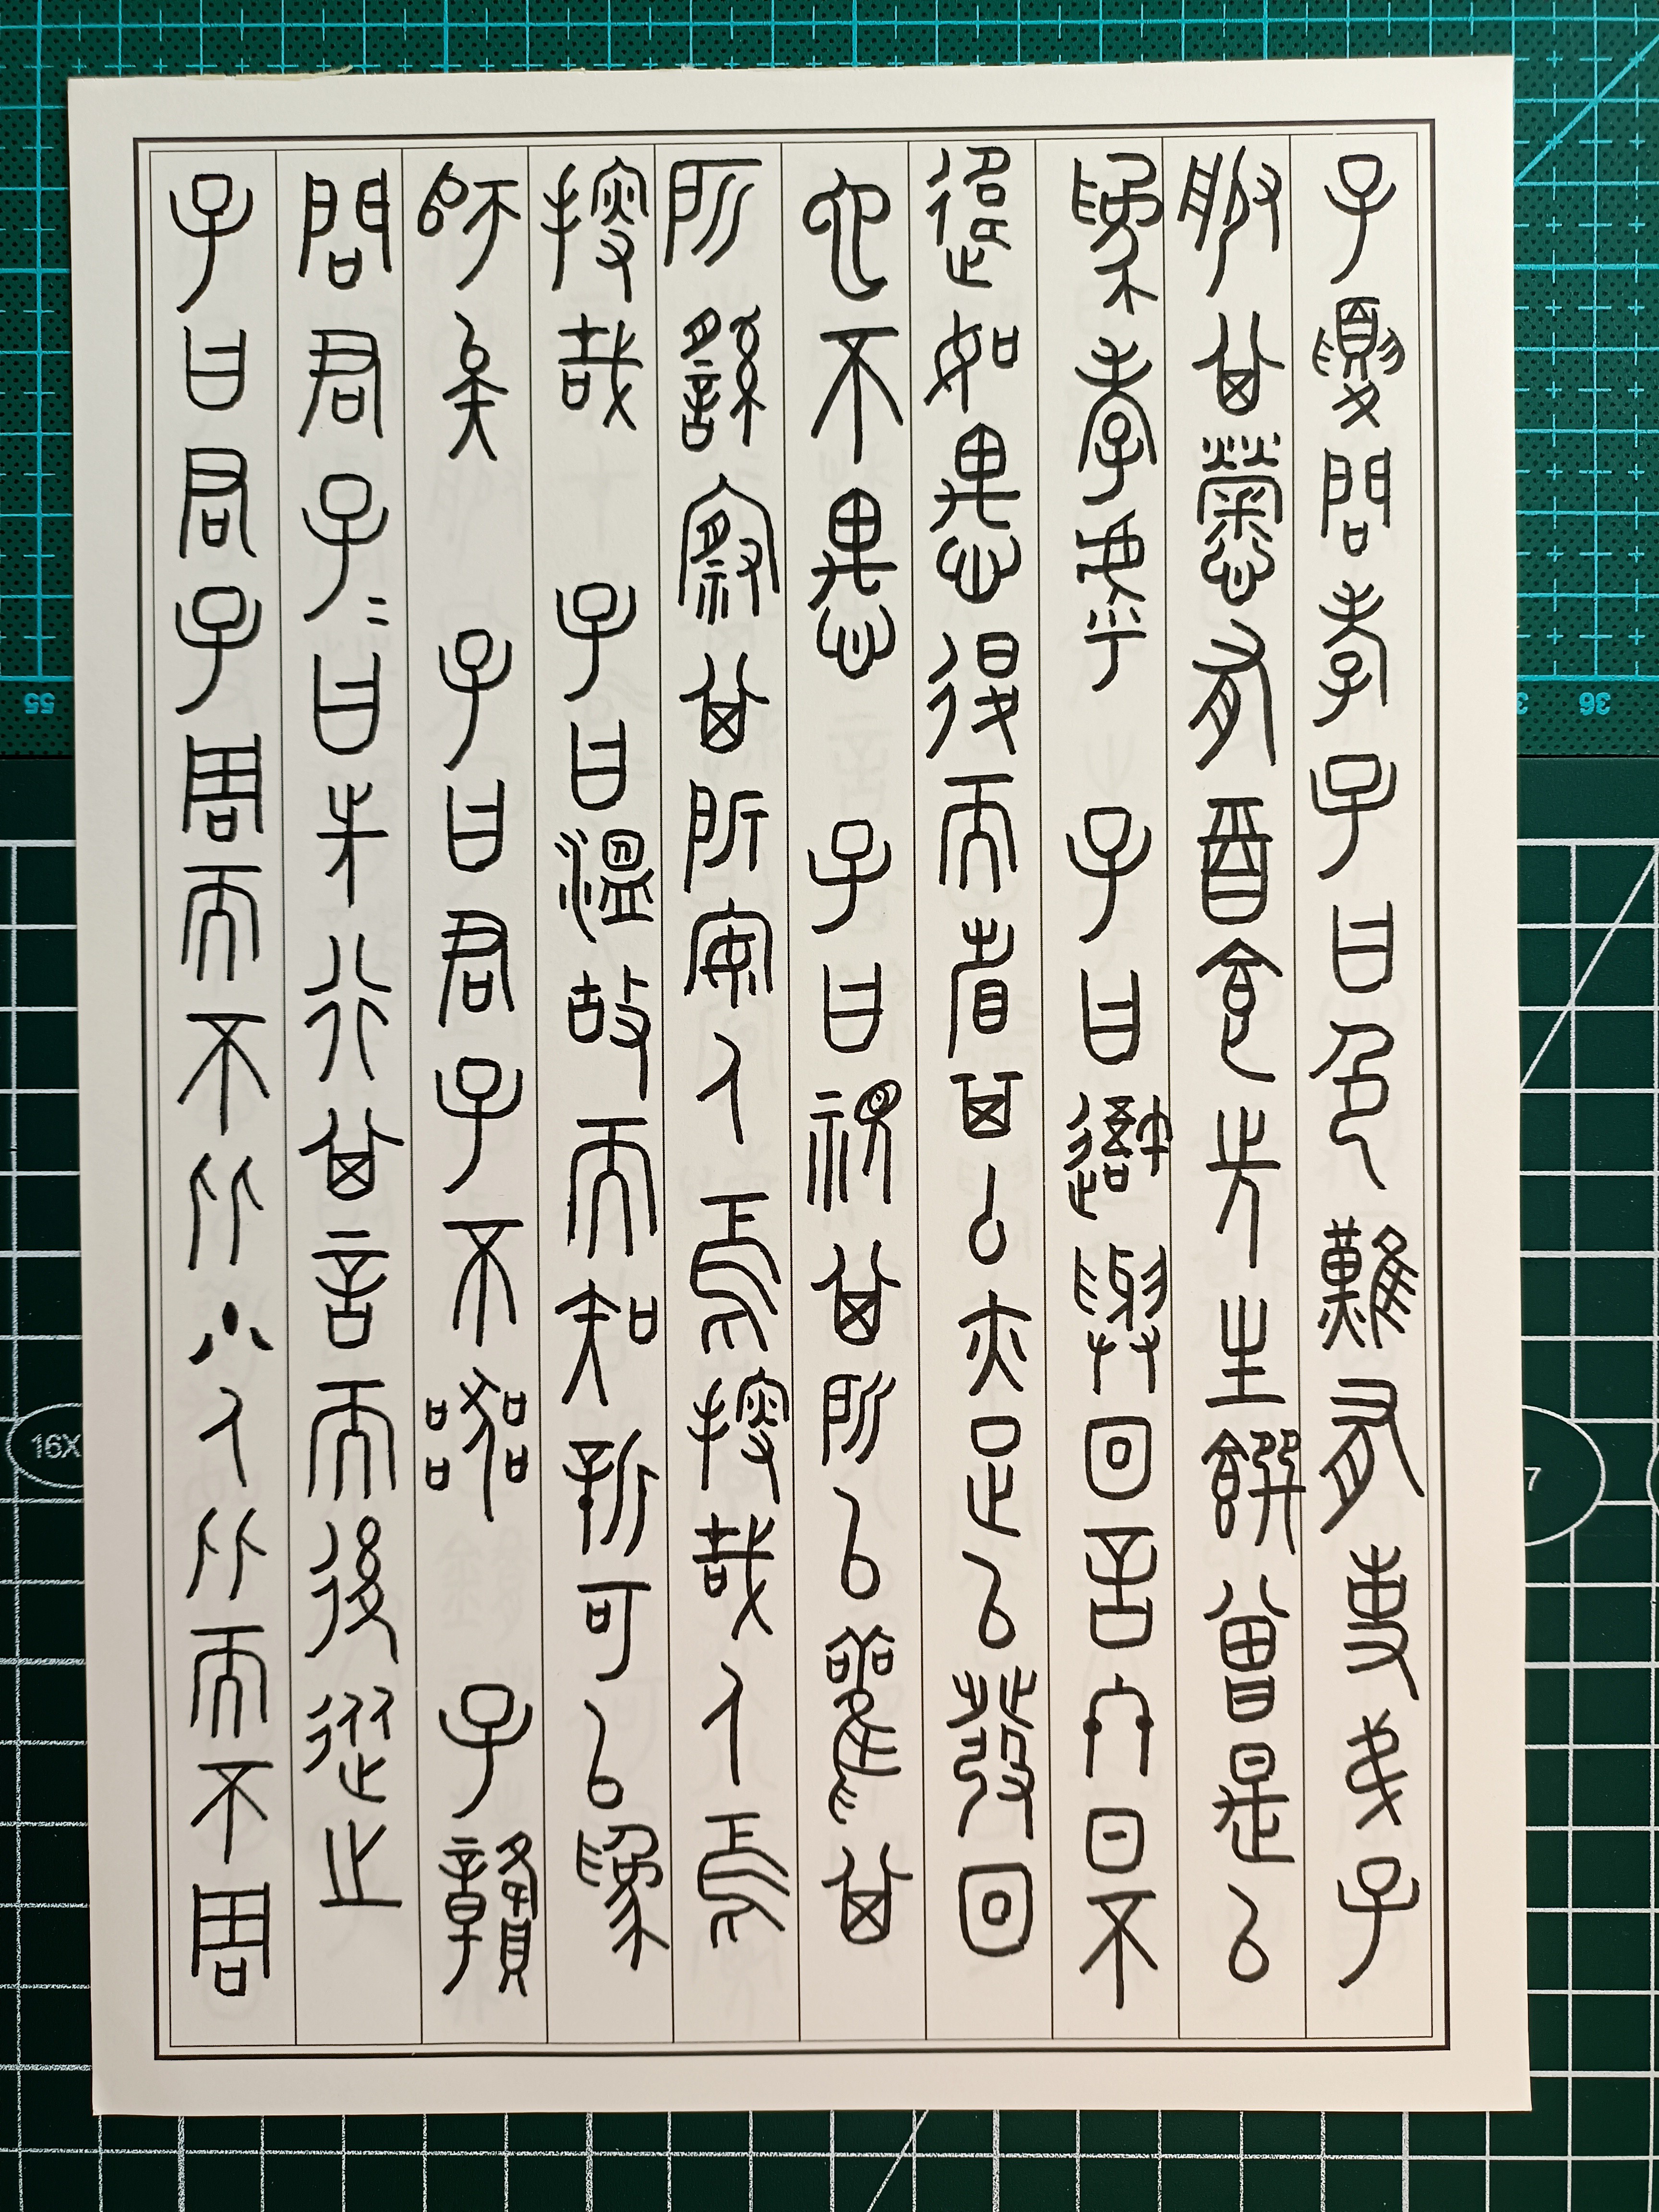 子夏問孝子曰色難有事弟子
服其勞有酒食先生饌曾是以
為孝乎 子曰吾與回言終日不
違如愚退而省其私亦足以發回
也不愚 子曰視其所以觀其
所由察其所安人焉廋哉人焉
廋哉 子曰溫故而知新可以為
師矣 子曰君子不器 子贛
問君子=曰先行其言而後從之
子曰君子周而不比小人比而不周